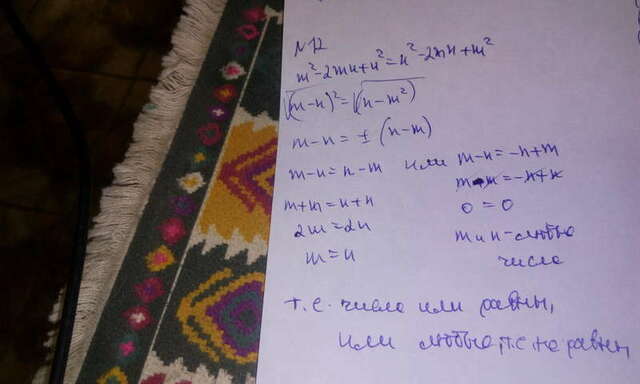 №12
m²-2mn+n²=n²-2mn+m²
√(m-n)²=√(n-m²)
m-n=±(n-m)
m-n=n-m или m-n=-n+m
m+m=n+n m-m=-n+n
2m=2n 0=0
m=n m и n-любые
числа
т.е. числа или равны,
или любые, т.е. не равны,